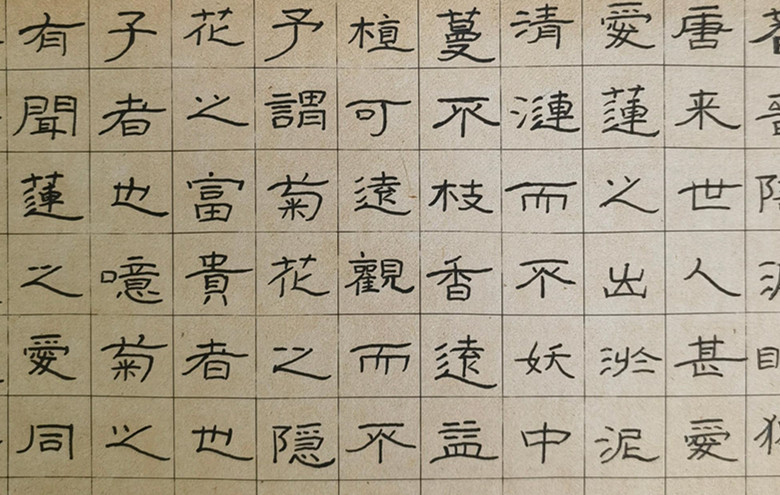 唐来世人甚愛
愛蓮之出淤泥
清漣而不妖中
蔓不枝香遠益
植可遠觀而不
予謂菊花之隱
花之富貴者也
子者也噫菊之
有聞蓮之愛同